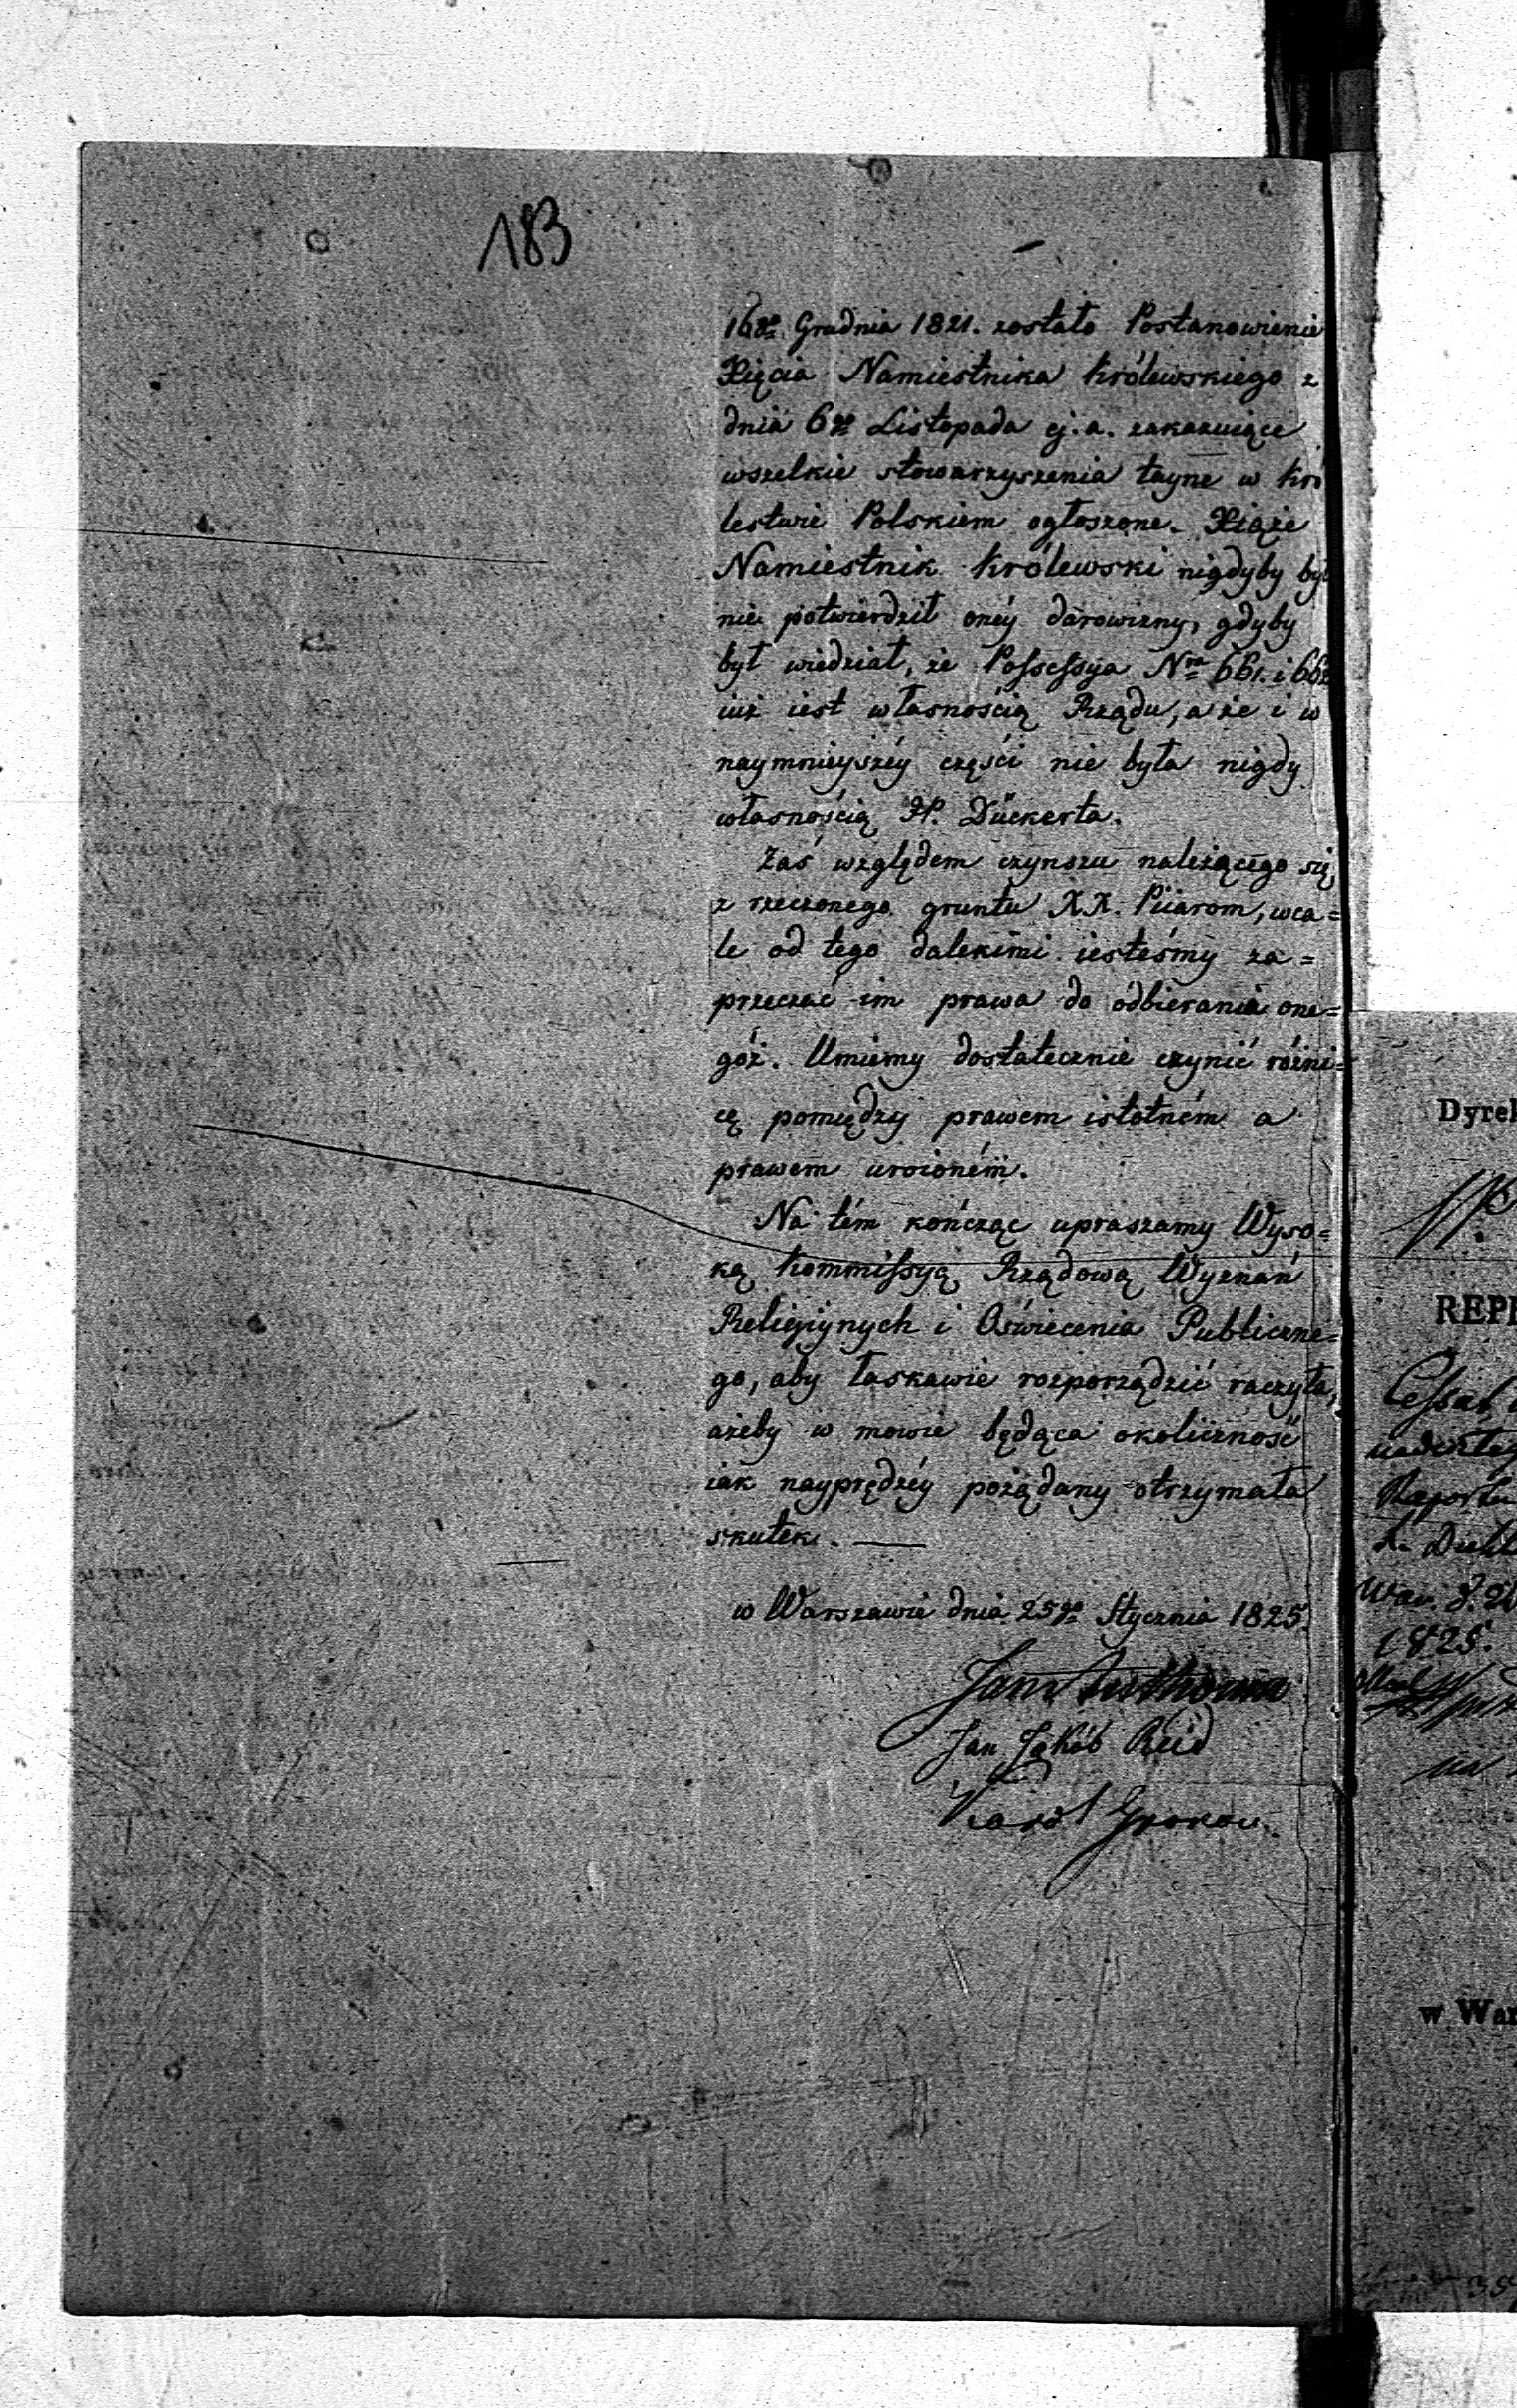 183
16go Grudnia 1821. zostało Postanowienie
Xięcia Namiestnika Królewskiego z
dnia 6go Listopada ej. a. zakazuiące
wszelkie stowarzyszenia tayne w Kró
lestwie Polskiem ogłoszone. Xiąże
Namiestnik Królewski nigdyby był
nie potwierdził onéy darowizny, gdyby
był wiedział, że Possessya Nro 661. i 662
iuż iest własnością Rządu, a że i w
naymnieyszéy części nie była nigdy
własnością P. Dückerta.
Zaś względem czynszu należącego się
z rzeczonego gruntu XX. Piiarom, wca=
le od tego dalekimi iesteśmy za=
przeczać im prawa do odbierania one=
góż. Umiemy dostatecznie czynić różni=
cę pomiędzy prawem istotném a
prawem uroioném.
Na tém kończąc upraszamy Wyso=
ką Kommissyą Rządową Wyznań
Religiynych i Oświecenia Publiczne=
go, aby łaskawie rozporządzić raczyła,
ażeby w mowie będąca okoliczność
iak nayprędzéy pożądany otrzymała
skutek. —
w Warszawie dnia 25go Stycznia 1825.
Jan
Jan Jakób
Karol
Dyrek
REPR
Raportu
1825.
w War